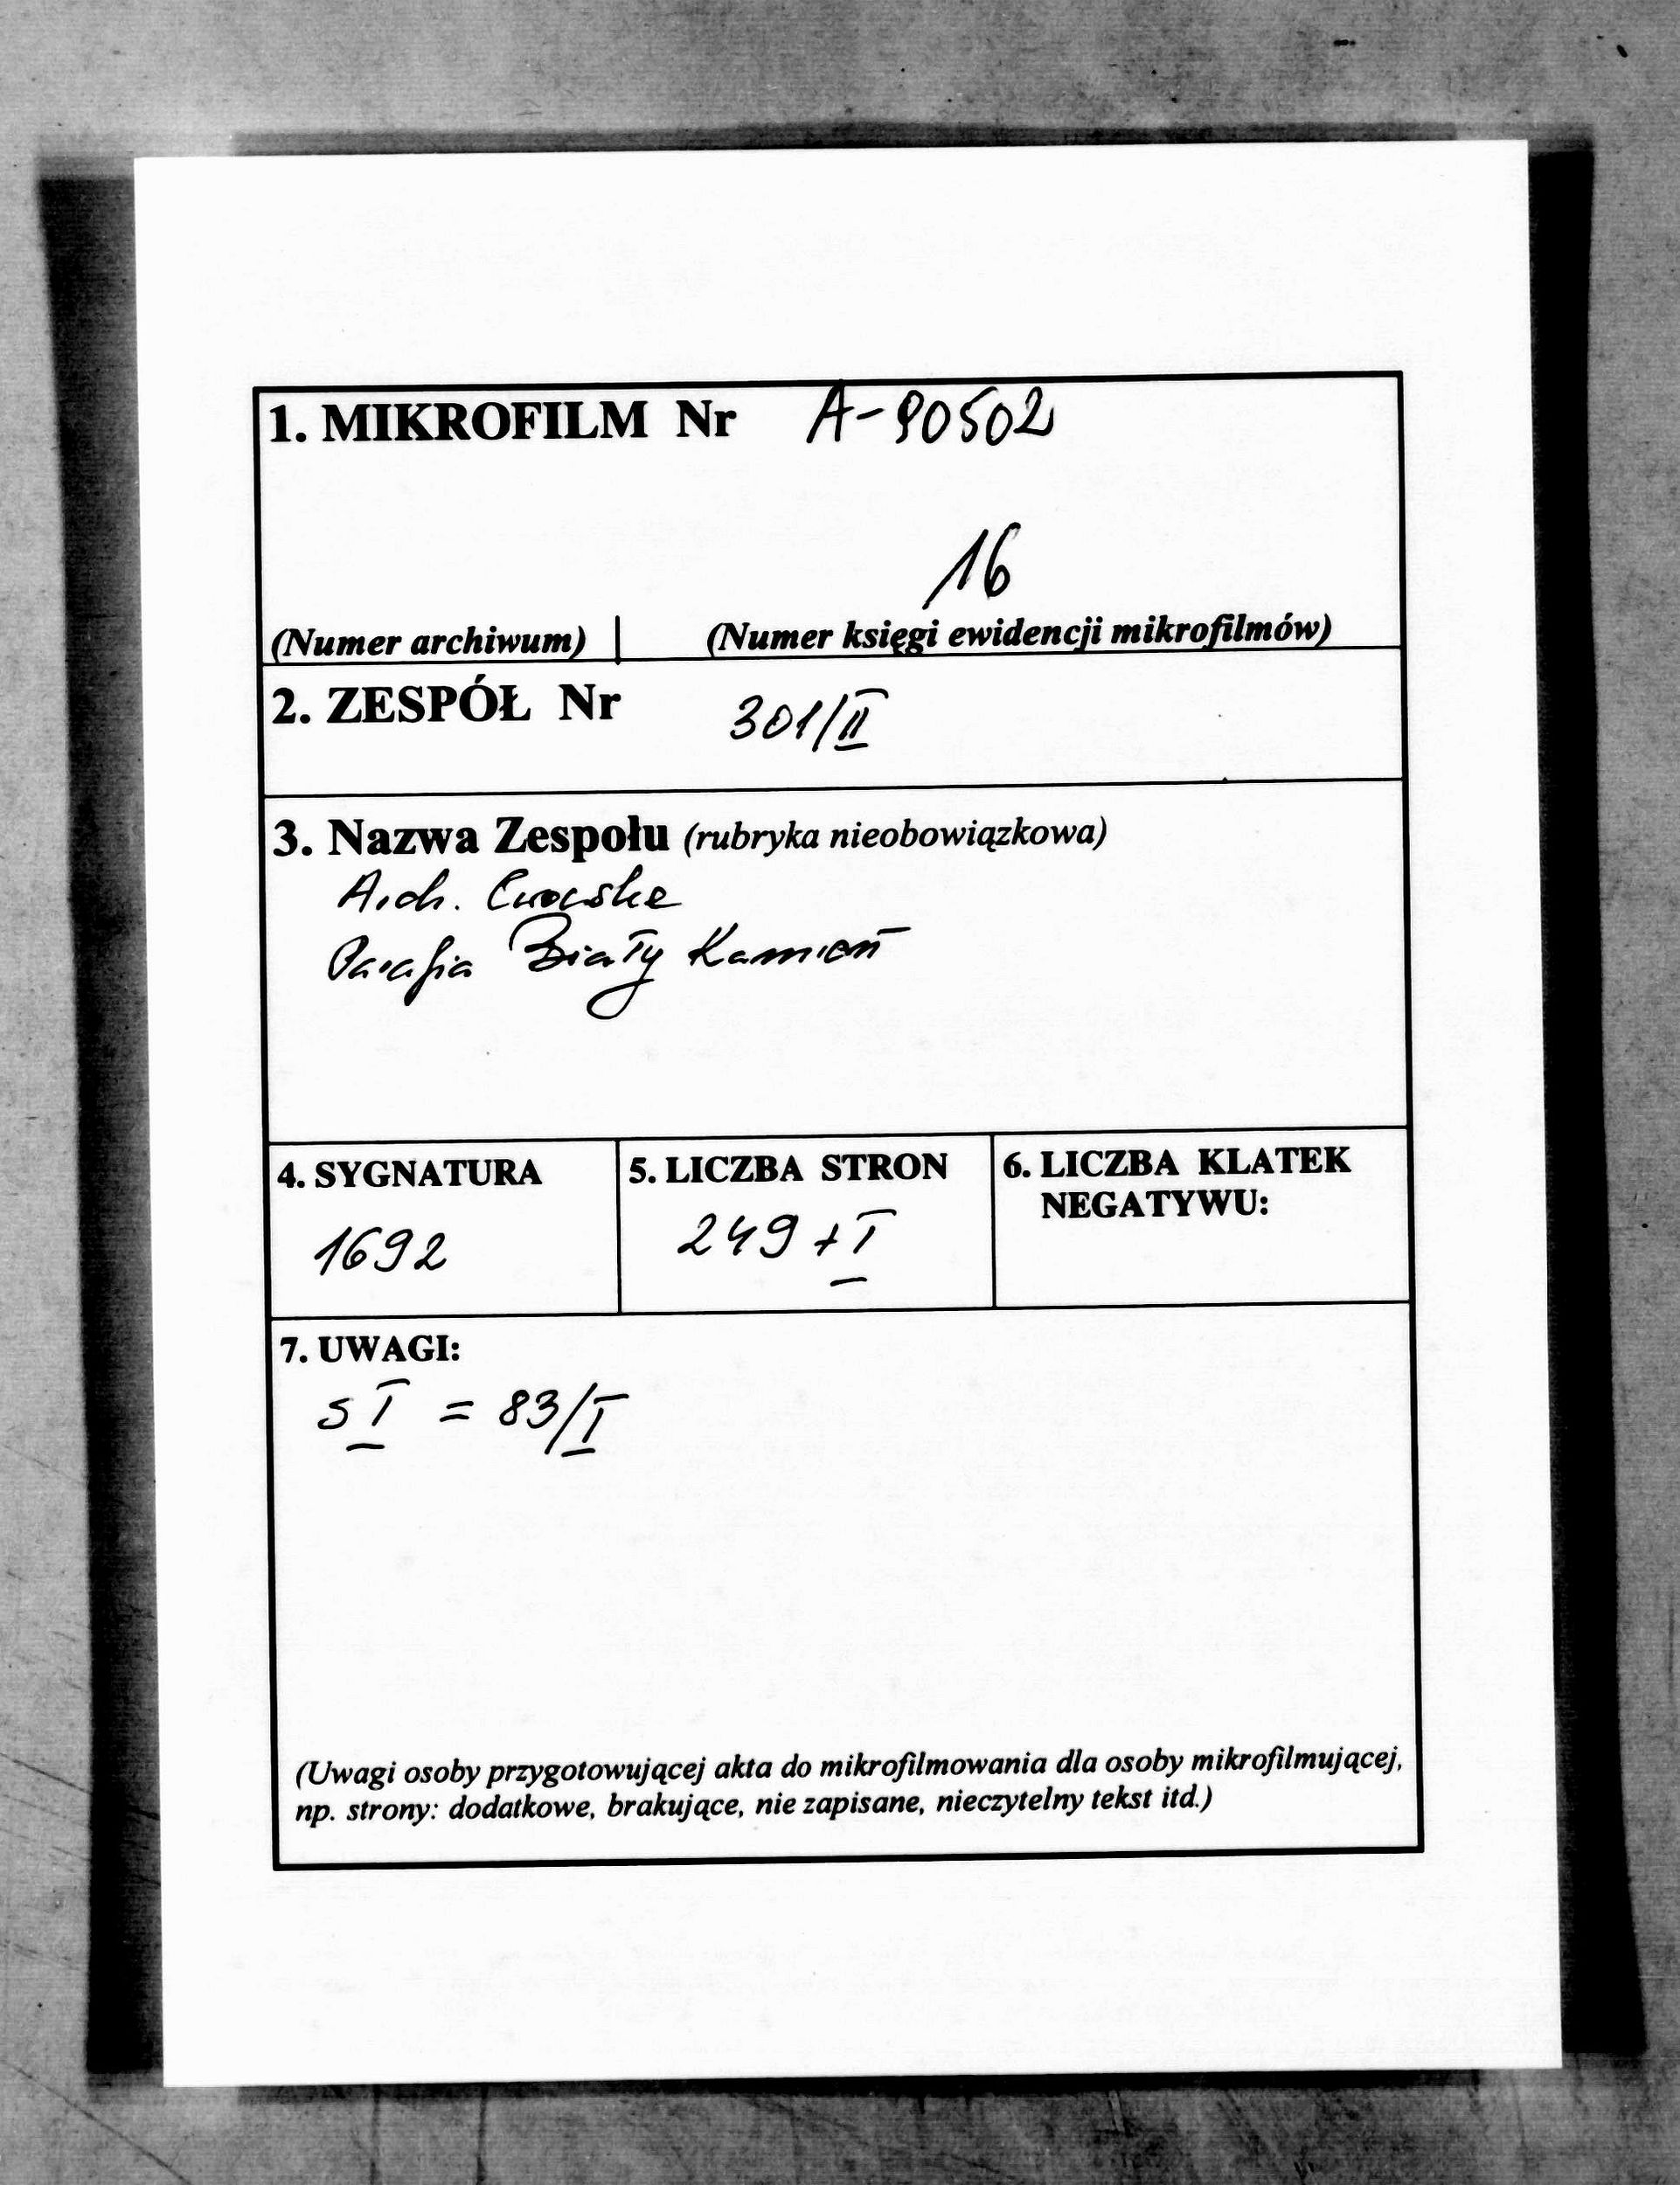 1. MIKROFILM Nr A-90502
16
(Numer archiwum) (Numer księgi ewidencji mikrofilmów)
2. ZESPÓŁ Nr 301/II
3. Nazwa Zespołu (rubryka nieobowiązkowa)
Arch. Lwowska
Parafia Biały Kamień
4. SYGNATURA
1692
5. LICZBA STRON
249 + I
6. LICZBA KLATEK
NEGATYWU:
7. UWAGI:
s I = 83/I
(Uwagi osoby przygotowującej akta do mikrofilmowania dla osoby mikrofilmującej,
np. strony: dodatkowe, brakujące, nie zapisane, nieczytelny tekst itd.)